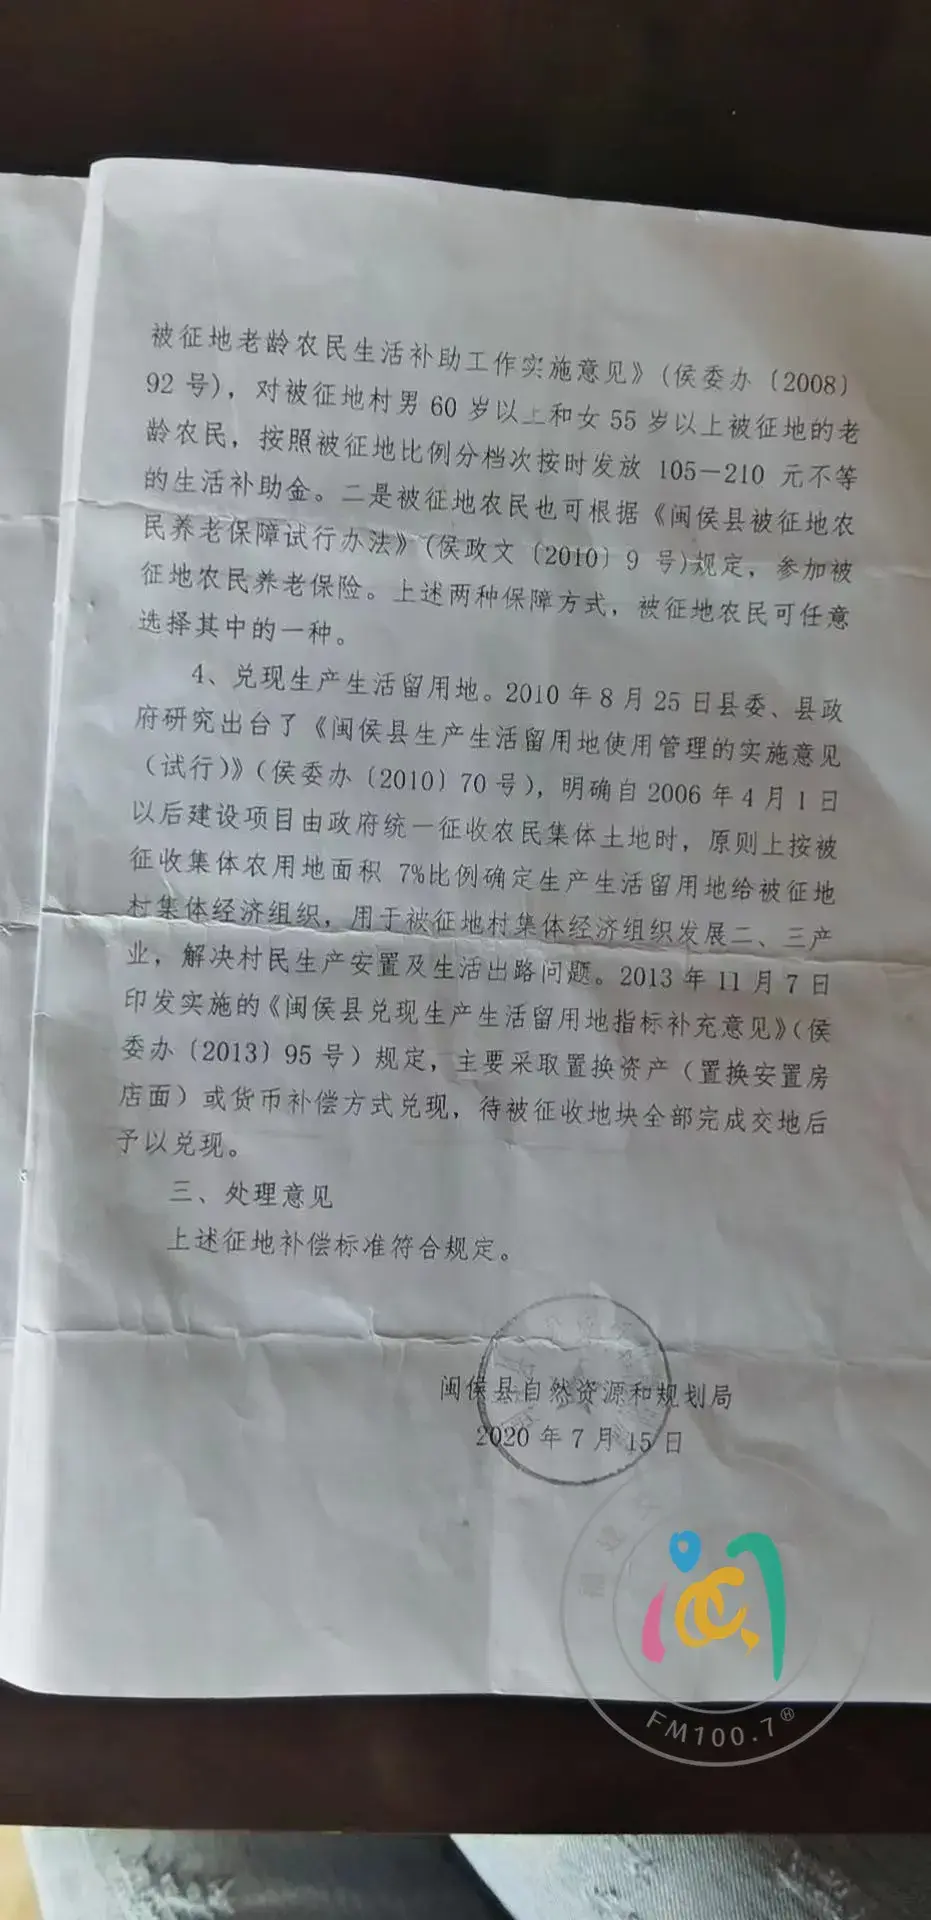 被征地老龄农民生活补助工作实施意见》(侯委办〔2008〕
92 号)，对被征地村男 60 岁以上和女 55 岁以上被征地的老
龄农民，按照被征地比例分档次按时发放 105－210 元不等
的生活补助金。二是被征地农民也可根据《闽侯县被征地农
民养老保障试行办法》(侯政文〔2010〕9 号)规定，参加被
征地农民养老保险。上述两种保障方式，被征地农民可任意
选择其中的一种。
4、兑现生产生活留用地。2010 年 8 月 25 日县委、县政
府研究出台了《闽侯县生产生活留用地使用管理的实施意见
（试行）》（侯委办〔2010〕70 号），明确自 2006 年 4 月 1 日
以后建设项目由政府统一征收农民集体土地时，原则上按被
征收集体农用地面积 7%比例确定生产生活留用地给被征地
村集体经济组织，用于被征地村集体经济组织发展二、三产
业，解决村民生产安置及生活出路问题。2013 年 11 月 7 日
印发实施的《闽侯县兑现生产生活留用地指标补充意见》（侯
委办〔2013〕95 号）规定，主要采取置换资产（置换安置房
店面）或货币补偿方式兑现，待被征收地块全部完成交地后
予以兑现。
三、处理意见
上述征地补偿标准符合规定。
闽侯县自然资源和规划局
2020 年 7 月 15 日
FM100.7